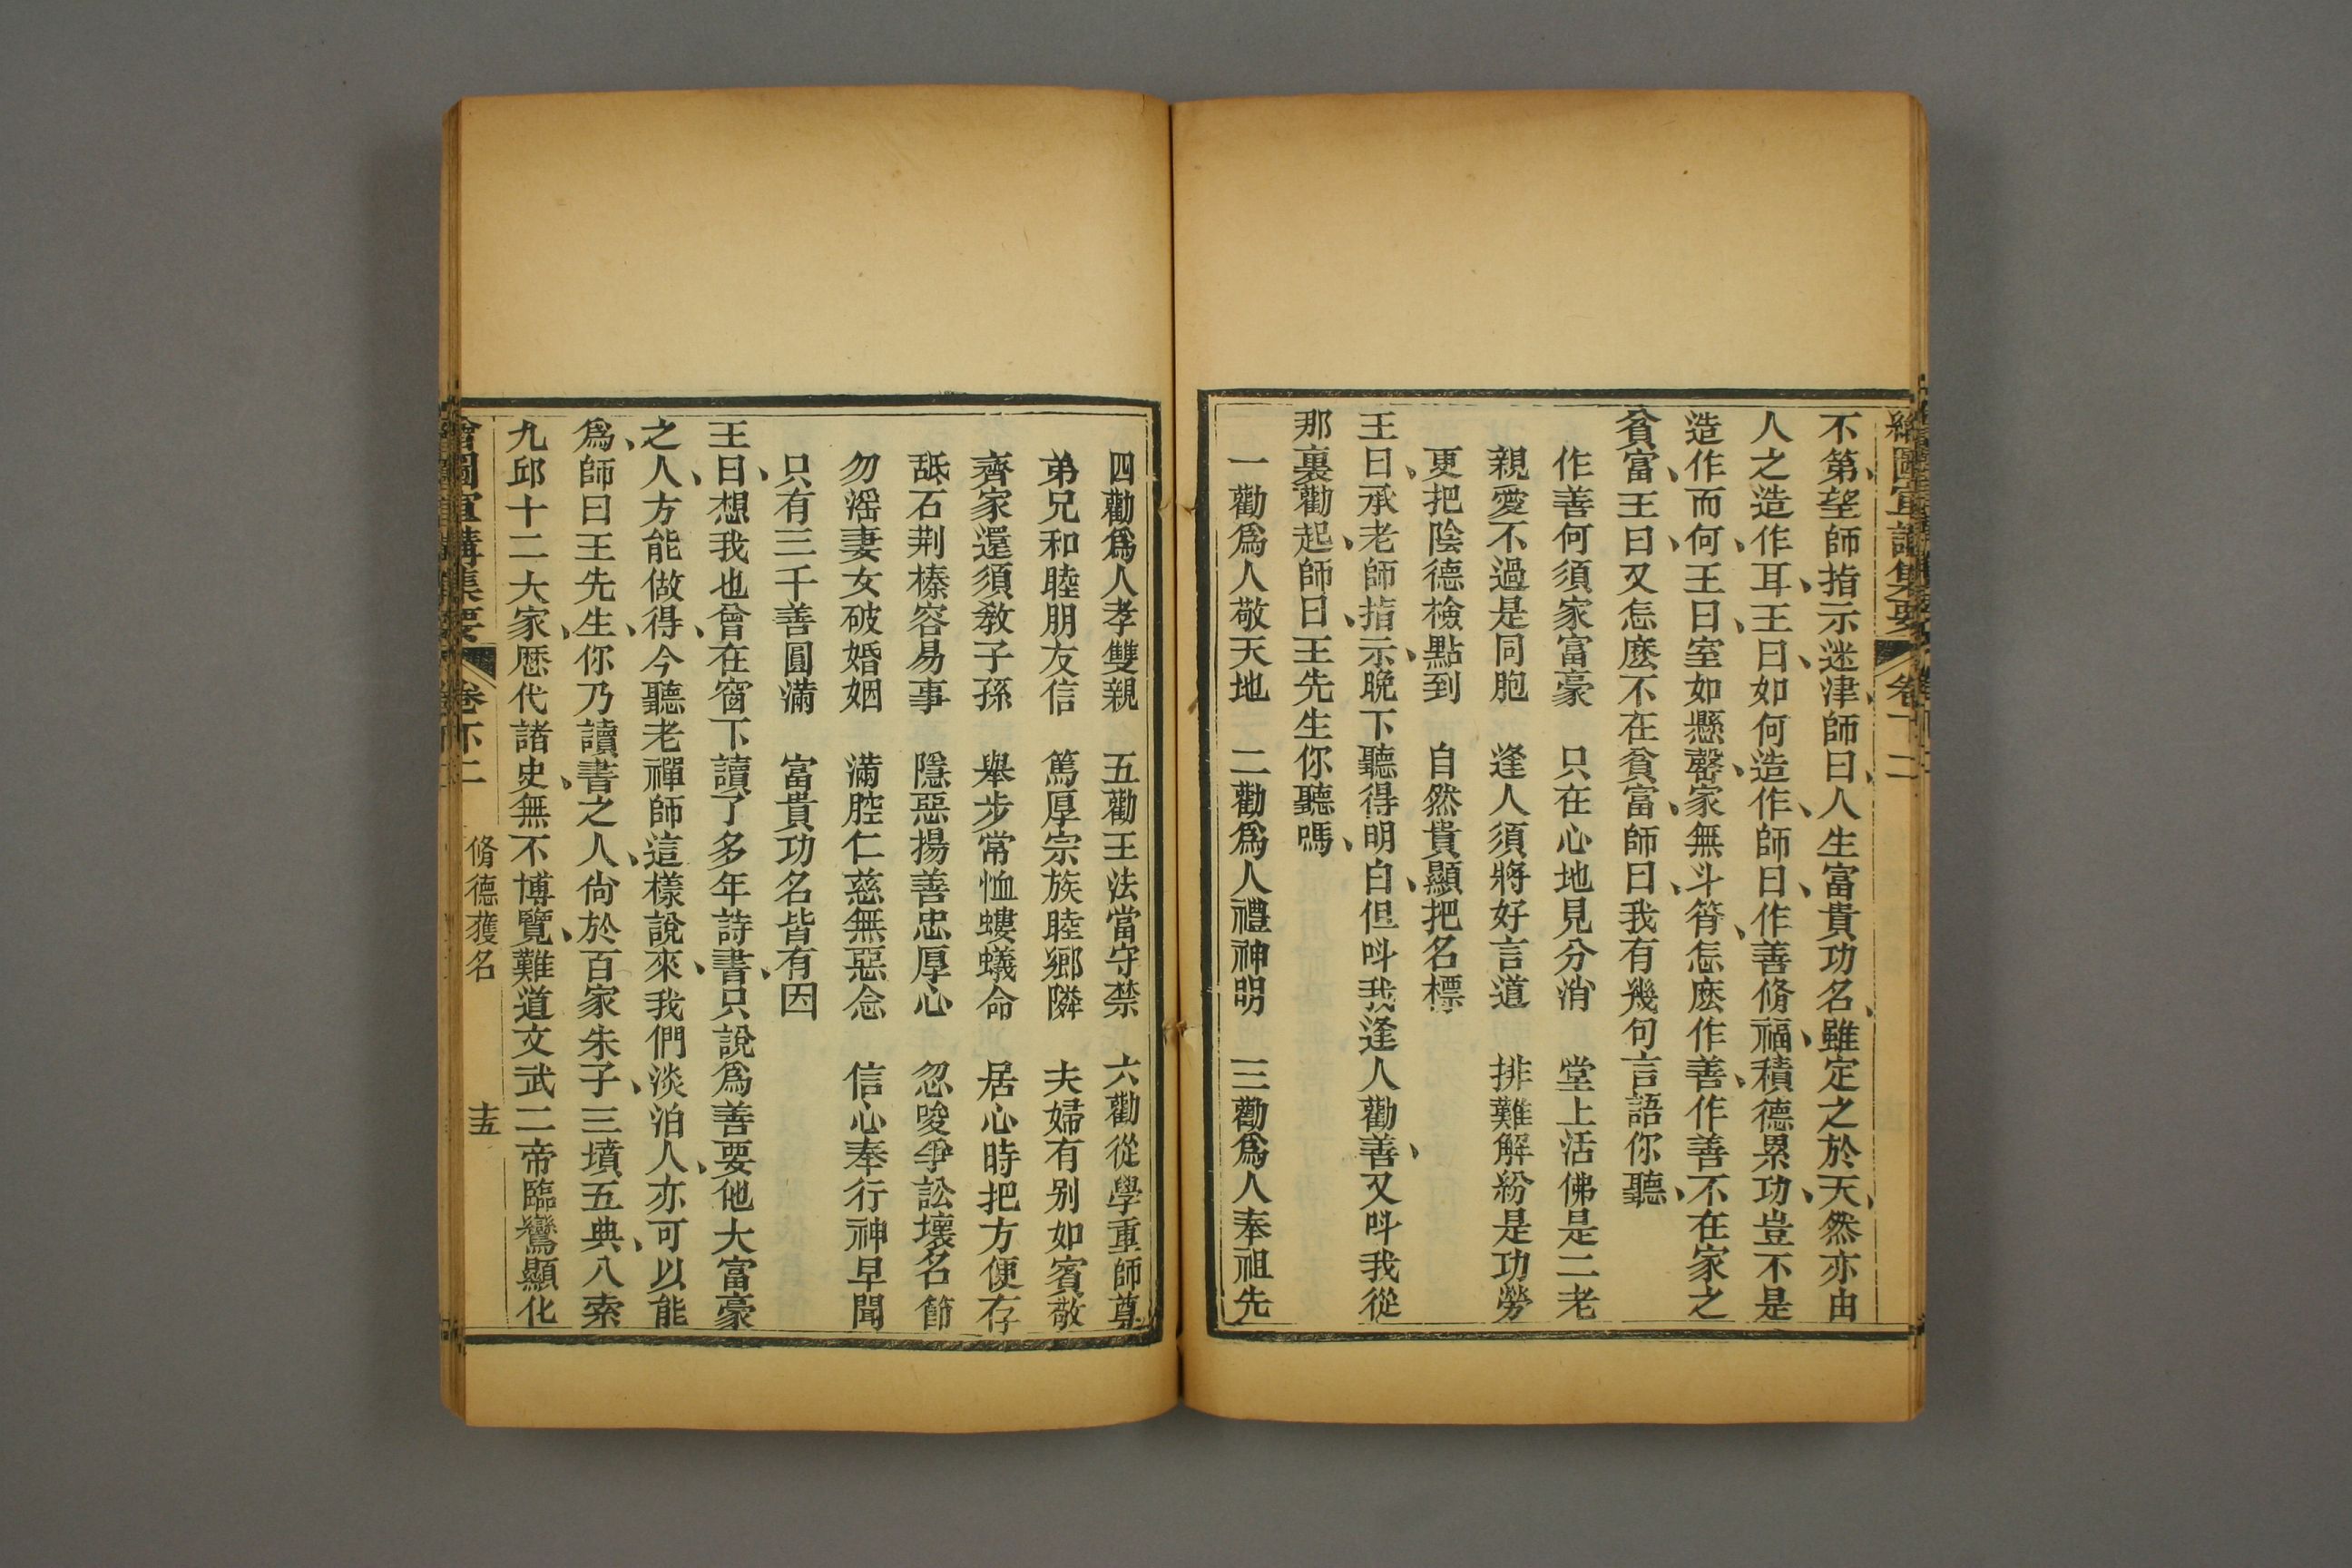 繪圖宣講集要 卷十二
不第望師指示迷津師曰人生富貴功名雖定之於天然亦由
人之造作耳王曰如何造作師曰作善脩福積德累功豈不是
造作而何王曰室如懸罄家無斗筲怎麽作善作善不在家之
貧富王曰又怎麽不在貧富師曰我有幾句言語你聽
作善何須家富豪 只在心地見分消 堂上活佛是二老
親愛不過是同胞 逢人須將好言道 排難解紛是功勞
更把陰德檢點到 自然貴顯把名標
王曰承老師指示晚下聽得明白但呌我逢人勸善又呌我從
那裏勸起師曰王先生你聽嗎
一勸爲人敬天地 二勸爲人禮神明 三勸爲人奉祖先
四勸爲人孝雙親 五勸王法當守禁 六勸從學重師尊
弟兄和睦朋友信 篤厚宗族睦鄉隣 夫婦有别如賓敬
齊家還須敎子孫 舉步常恤螻蟻命 居心時把方便存
砥石荆榛容易事 隱惡揚善忠厚心 忽唆爭訟壞名節
勿滛妻女破婚姻 滿腔仁慈無惡念 信心奉行神早聞
只有三千善圓滿 富貴功名皆有因
王曰想我也曾在窗下讀了多年詩書只說爲善要他大富豪
之人方能做得今聽老禪師這樣說來我們淡泊人亦可以能
爲師曰王先生你乃讀書之人尙於百家朱子三墳五典八索
九邱十二大家歷代諸史無不博覽難道文武二帝臨鸞顯化
繪圖宣講集要 卷十二 脩德獲名 十五